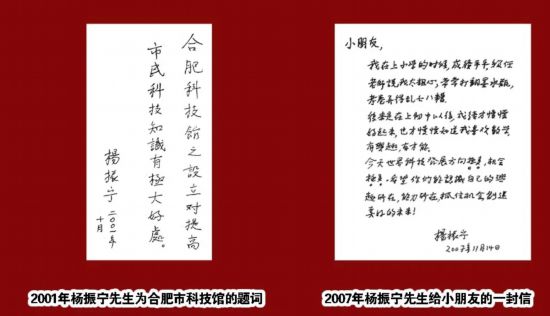 合肥科技馆之設立对提高
市民科技知識有極大好處。
楊振宁 二〇〇一年
十月
小朋友，
我在上小学的时候，成绩平平
老师说我太粗心，常常打翻墨水瓶，
考卷弄得乱七八糟
後来是在上初中以後，我才慢慢
好起来，也才慢慢知道我喜欢数学
有興趣，有才能。
今天世界科技發展方向極多，机会
極多。希望你们能認識自己的興
趣所在，能力所在，抓住机会創造
美好的未来！
楊振宁
2007年11月14日
2001年杨振宁先生为合肥市科技馆的题词
2007年杨振宁先生给小朋友的一封信